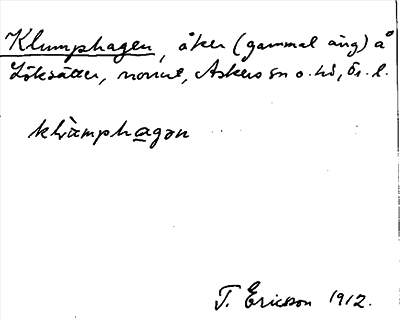 Klumphagen, åker (gammal äng) å
Löksätter, norrut, Askers sn o. hd, Ör. l.
klὼmphagən
T. Ericsson 1912.